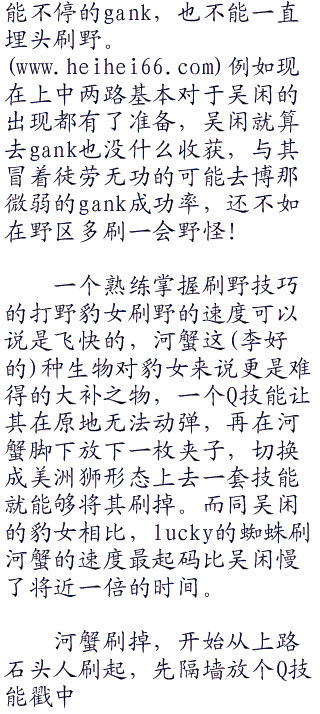 能不停的gank，也不能一直
埋头刷野。
(www.heihei66.com)例如现
在上中两路基本对于吴闲的
出现都有了准备，吴闲就算
去gank也没什么收获，与其
冒着徒劳无功的可能去博那
微弱的gank成功率，还不如
在野区多刷一会野怪！
一个熟练掌握刷野技巧
的打野豹女刷野的速度可以
说是飞快的，河蟹这(李好
的)种生物对豹女来说更是难
得的大补之物，一个Q技能让
其在原地无法动弹，再在河
蟹脚下放下一枚夹子，切换
成美洲狮形态上去一套技能
就能够将其刷掉。而同吴闲
的豹女相比，lucky的蜘蛛刷
河蟹的速度最起码比吴闲慢
了将近一倍的时间。
河蟹刷掉，开始从上路
石头人刷起，先隔墙放个Q技
能戳中